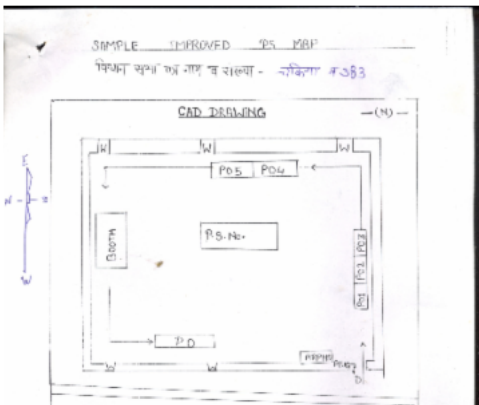 SAMPLE IMPROVED PS MAP
विधान सभा का नाम व संख्या - चकिया # 383
CAD DRAWING -(N)-
W W W
PO5 PO4
E
BOOTH
P.S.No.
PO1 PO2 PO3
PO
D